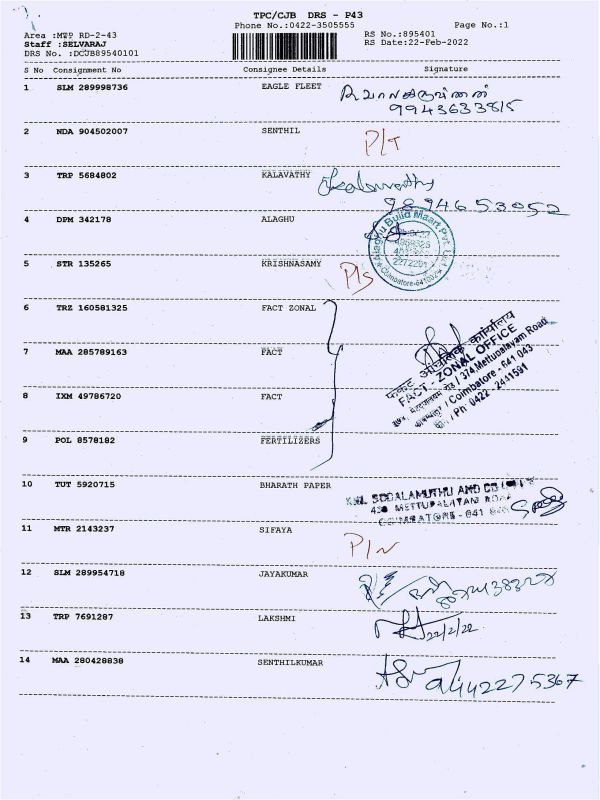 TPC/CJB DRS - P43
Phone No.:0422-3505555
Page No.:1
Area :MTP RD-2-43
RS No.:895401
Staff :SELVARAJ
RS Date:22-Feb-2022
DRS No. :DCJB89540101
S No Consignment No Consignee Details Signature
1 SLM 289998736 EAGLE FLEET
9943633815
2 NDA 904502007 SENTHIL P/T
3 TRP 5684802 KALAVATHY Kalavathy
9894653052
4 DPM 342178 ALAGHU
Alaghu Build Maart Pvt. Ltd
2272201
Coimbatore-641002
5 STR 135265 KRISHNASAMY P/S
6 TRZ 160581325 FACT ZONAL
7 MAA 285789163 FACT
फैक्ट आंचलिक कार्यालय
FACT - ZONAL OFFICE
374, Mettupalayam Road
8 IXM 49786720 FACT
Coimbatore - 641 043
Ph: 0422 - 2441591
9 POL 8578182 FERTILIZERS
10 TUT 5920715 BHARATH PAPER
SODALAMUTHU AND CO
METTUPALAYAM ROAD
COIMBATORE - 641
11 MTR 2143237 SIFAYA P/N
12 SLM 289954718 JAYAKUMAR
13 TRP 7691287 LAKSHMI
22/2/22
14 MAA 280428838 SENTHILKUMAR
9442275367